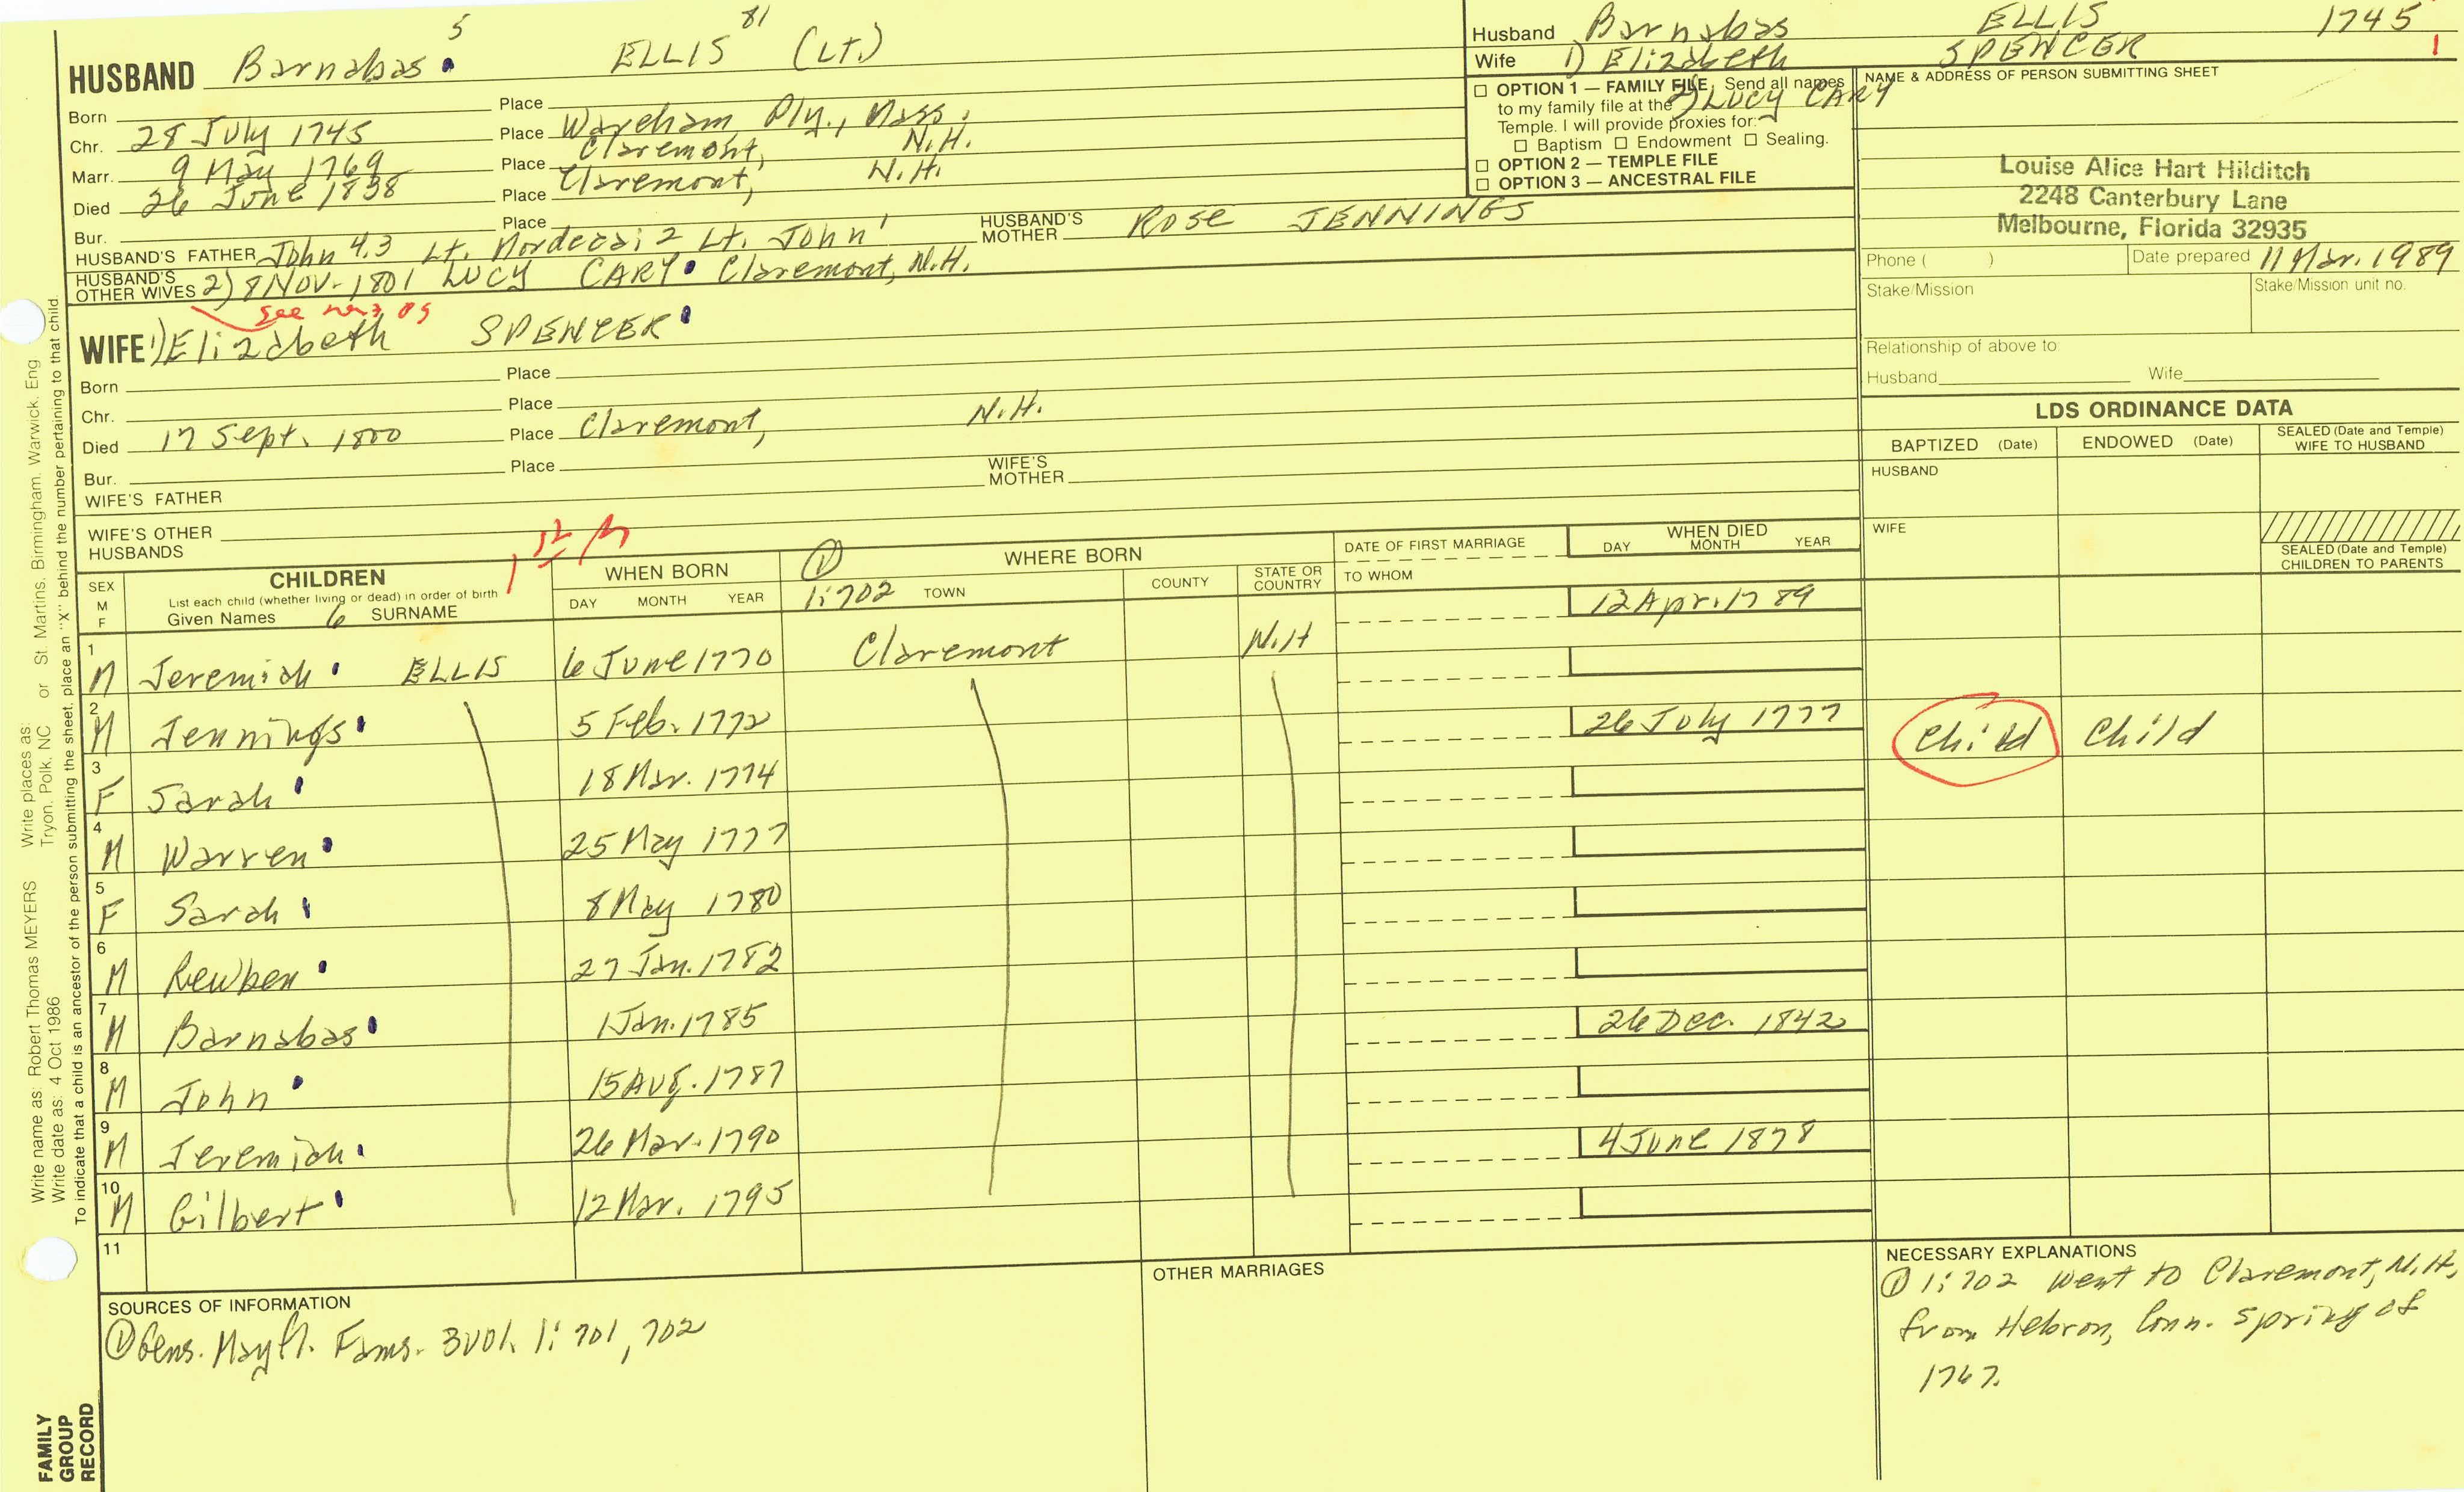 5 81
HUSBAND Barnabas ELLIS (Lt.)
Born Place
Chr. 28 July 1745 Place Wareham, Ply., Mass.
Marr. 9 May 1769 Place Claremont, N.H.
Died 26 June 1838 Place Claremont, N.H.
Bur. Place
HUSBAND'S FATHER John 4,3 Lt. Mordecai 2 Lt. John 1 HUSBAND'S MOTHER Rose JENNINGS
HUSBAND'S OTHER WIVES 2) 8 Nov. 1801 Lucy CARY Claremont, N.H.
see
WIFE 1) Elizabeth SPENCER
Born Place
Chr. Place
Died 17 Sept. 1800 Place Claremont, N.H.
Bur. Place
WIFE'S FATHER WIFE'S MOTHER
WIFE'S OTHER HUSBANDS
Husband Barnabas ELLIS 1745
Wife 1) Elizabeth SPENCER 1
2) Lucy CARY
☐ OPTION 1 — FAMILY FILE Send all names
to my family file at the
Temple. I will provide proxies for:
☐ Baptism ☐ Endowment ☐ Sealing.
☐ OPTION 2 — TEMPLE FILE
☐ OPTION 3 — ANCESTRAL FILE
NAME & ADDRESS OF PERSON SUBMITTING SHEET
Louise Alice Hart Hilditch
2248 Canterbury Lane
Melbourne, Florida 32935
Phone ( ) Date prepared 11 Mar. 1989
Stake/Mission Stake/Mission unit no.
Relationship of above to:
Husband Wife
LDS ORDINANCE DATA
BAPTIZED (Date) ENDOWED (Date) SEALED (Date and Temple) WIFE TO HUSBAND
HUSBAND
WIFE
SEALED (Date and Temple) CHILDREN TO PARENTS
SEX M F
CHILDREN
List each child (whether living or dead) in order of birth
Given Names 6 SURNAME
WHEN BORN
DAY MONTH YEAR
① WHERE BORN
1:702 TOWN COUNTY STATE OR COUNTRY
DATE OF FIRST MARRIAGE
TO WHOM
WHEN DIED
DAY MONTH YEAR
1 M Jeremiah ELLIS 6 June 1770 Claremont N.H 12 Apr. 1789
2 M Jennings 5 Feb. 1772
3 F Sarah 18 Mar. 1774 26 July 1777 Child Child
4 M Warren 25 May 1777
5 F Sarah 8 May 1780
6 M Rewben 27 Jan. 1782
7 M Barnabas 1 Jan. 1785
8 M John 15 Aug. 1787 26 Dec. 1842
9 M Jeremiah 26 Mar. 1790
10 M Gilbert 12 Mar. 1795 4 June 1878
11
SOURCES OF INFORMATION
① Gens. Mayfl. Fams. 3 vol. 1: 701, 702
OTHER MARRIAGES
NECESSARY EXPLANATIONS
① 1:702 Went to Claremont, N.H,
from Hebron, Conn. spring of
1767.
Write name as: Robert Thomas MEYERS Write places as: St. Martins, Birmingham, Warwick, Eng
Write date as: 4 Oct 1986 Tryon, Polk, NC or
To indicate that a child is an ancestor of the person submitting the sheet, place an "X" behind the number pertaining to that child.
FAMILY
GROUP
RECORD